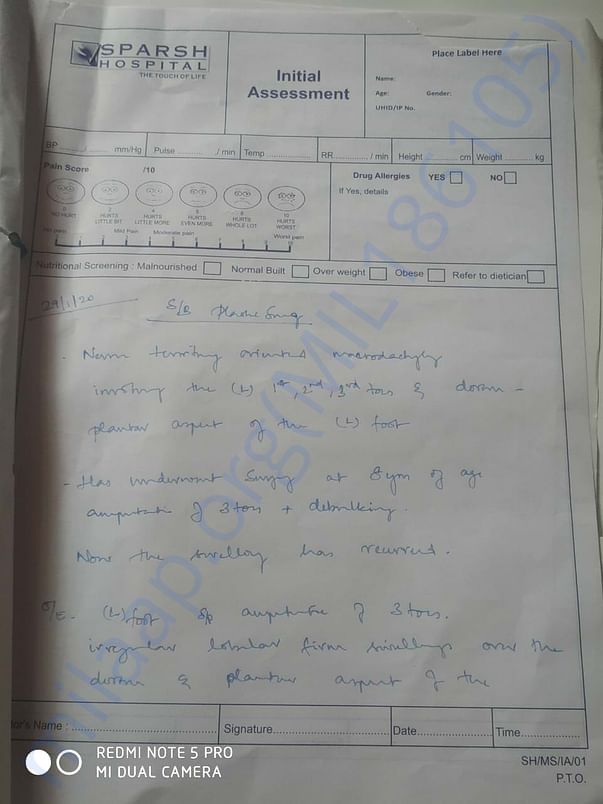 SPARSH
HOSPITAL
THE TOUCH OF LIFE
Initial
Assessment
Place Label Here
Name:
Age: Gender:
UHID/IP No.
BP mm/Hg Pulse / min Temp RR / min Height cm Weight kg
Pain Score /10
0 2 4 6 8 10
NO HURT HURTS LITTLE BIT HURTS LITTLE MORE HURTS EVEN MORE HURTS WHOLE LOT HURTS WORST
No pain Mild Pain Moderate pain Worst pain
Drug Allergies YES NO
If Yes, details
Nutritional Screening : Malnourished Normal Built Over weight Obese Refer to dietician
29/1/20 S/B Plastic Surg
- Nerve territory oriented macrodactyly
involving the (L) 1st, 2nd, 3rd toes & dorsum -
plantar aspect of the (L) foot
- Has underwent Surgery at 8 yrs of age
amputation of 3 toes + debulking.
Now the swelling has recurred.
O/E. (L) foot S/p amputation of 3 toes.
irregular lobular firm swellings over the
dorsum & plantar aspect of the
tor's Name : Signature Date Time
SH/MS/IA/01
P.T.O.
REDMI NOTE 5 PRO
MI DUAL CAMERA
milaap.org(MIL186105)